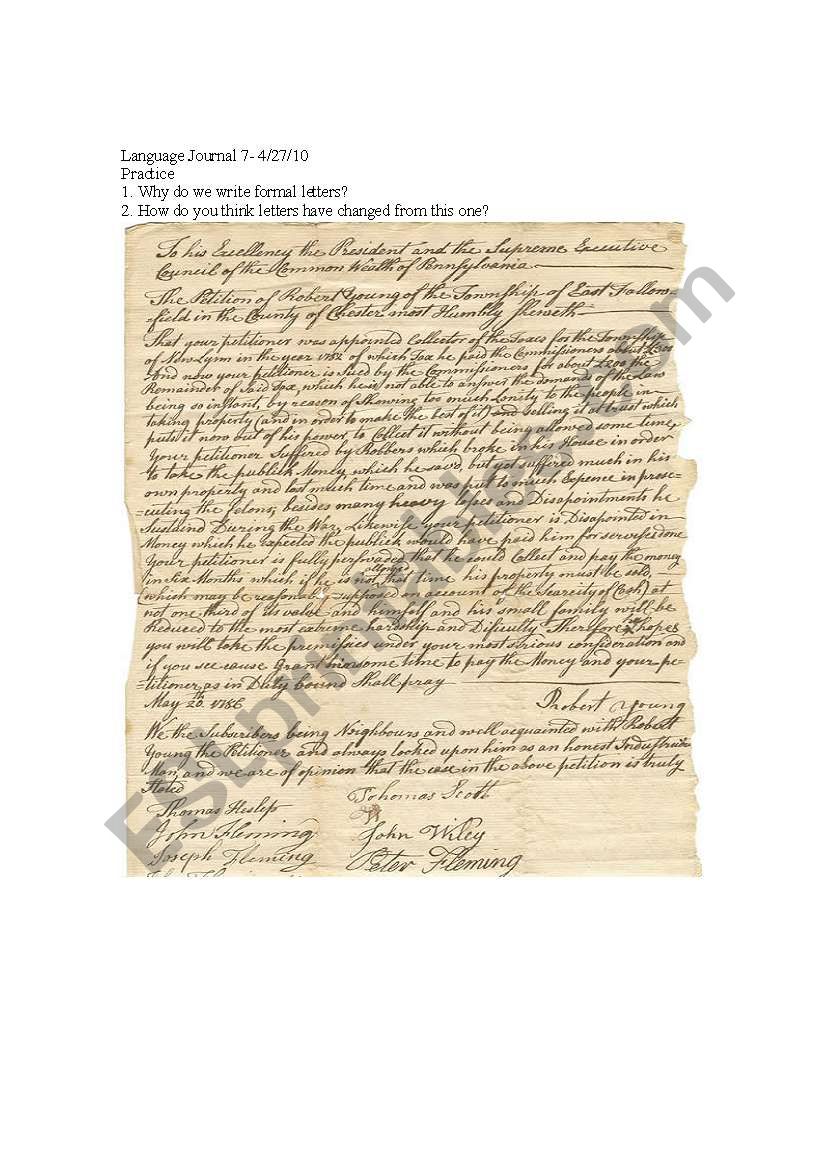 Language Journal 7- 4/27/10
Practice
1. Why do we write formal letters?
2. How do you think letters have changed from this one?
To his Excellency the President and the Supreme Executive
Council of the Common Wealth of Pennsylvania
The Petition of Robert Young of the Township of East Fallow-
-field in the County of Chester most Humbly Sheweth
That your petitioner was appointed Collector of the Taxes for the Township
of New Linn in the year 1782 of which Tax he paid the Commissioners about
And now your petitioner is Sued by the Commissioners for about £200 the
Remainder of Said Tax, which he is not able to answer the demand of the Law
being so instant, by reason of Shewing too much Lenity to the people in
taking property (and in order to make the best of it) and selling it at trust which
puts it now out of his power to Collect it without being allowed some time
Your petitioner Suffered by Robbers which broke in his House in order
to take the publick Money which he savd, but yet suffered much in his
own property and lost much time and was put to much Expence in prose=
=cuting the felons; besides many heavy losses and Disapointments he
Sustaind During the War, Likewise your petitioner is Disapointed in
Money which he expected the publick would have paid him for services done
Your petitioner is fully perswaded that he could Collect and pay the money
in Six Months which if he is not allowed that time his property must be sold,
which may be supposed on account of the Scarcity of Cash) at
not one third of its value and himself and his small family will be
Reduced to the most extreme hardship and Dificulty Therefore hopes
you will take the premises under your most serious consideration and
if you see cause Grant him some time to pay the Money and your pe=
=titioner as in Duty bound Shall pray
May 20th 1786 Robert Young
We the Subscribers being Neighbours and well acquainted with Robert
Young the Petitioner and always looked upon him as an honest
Man, and we are of opinion that the case in the above petition is truly
Stated
Thomas Heslip Tohomas Scott
John Fleming John Wiley
Joseph Fleming Peter Fleming
ESLprintables.com